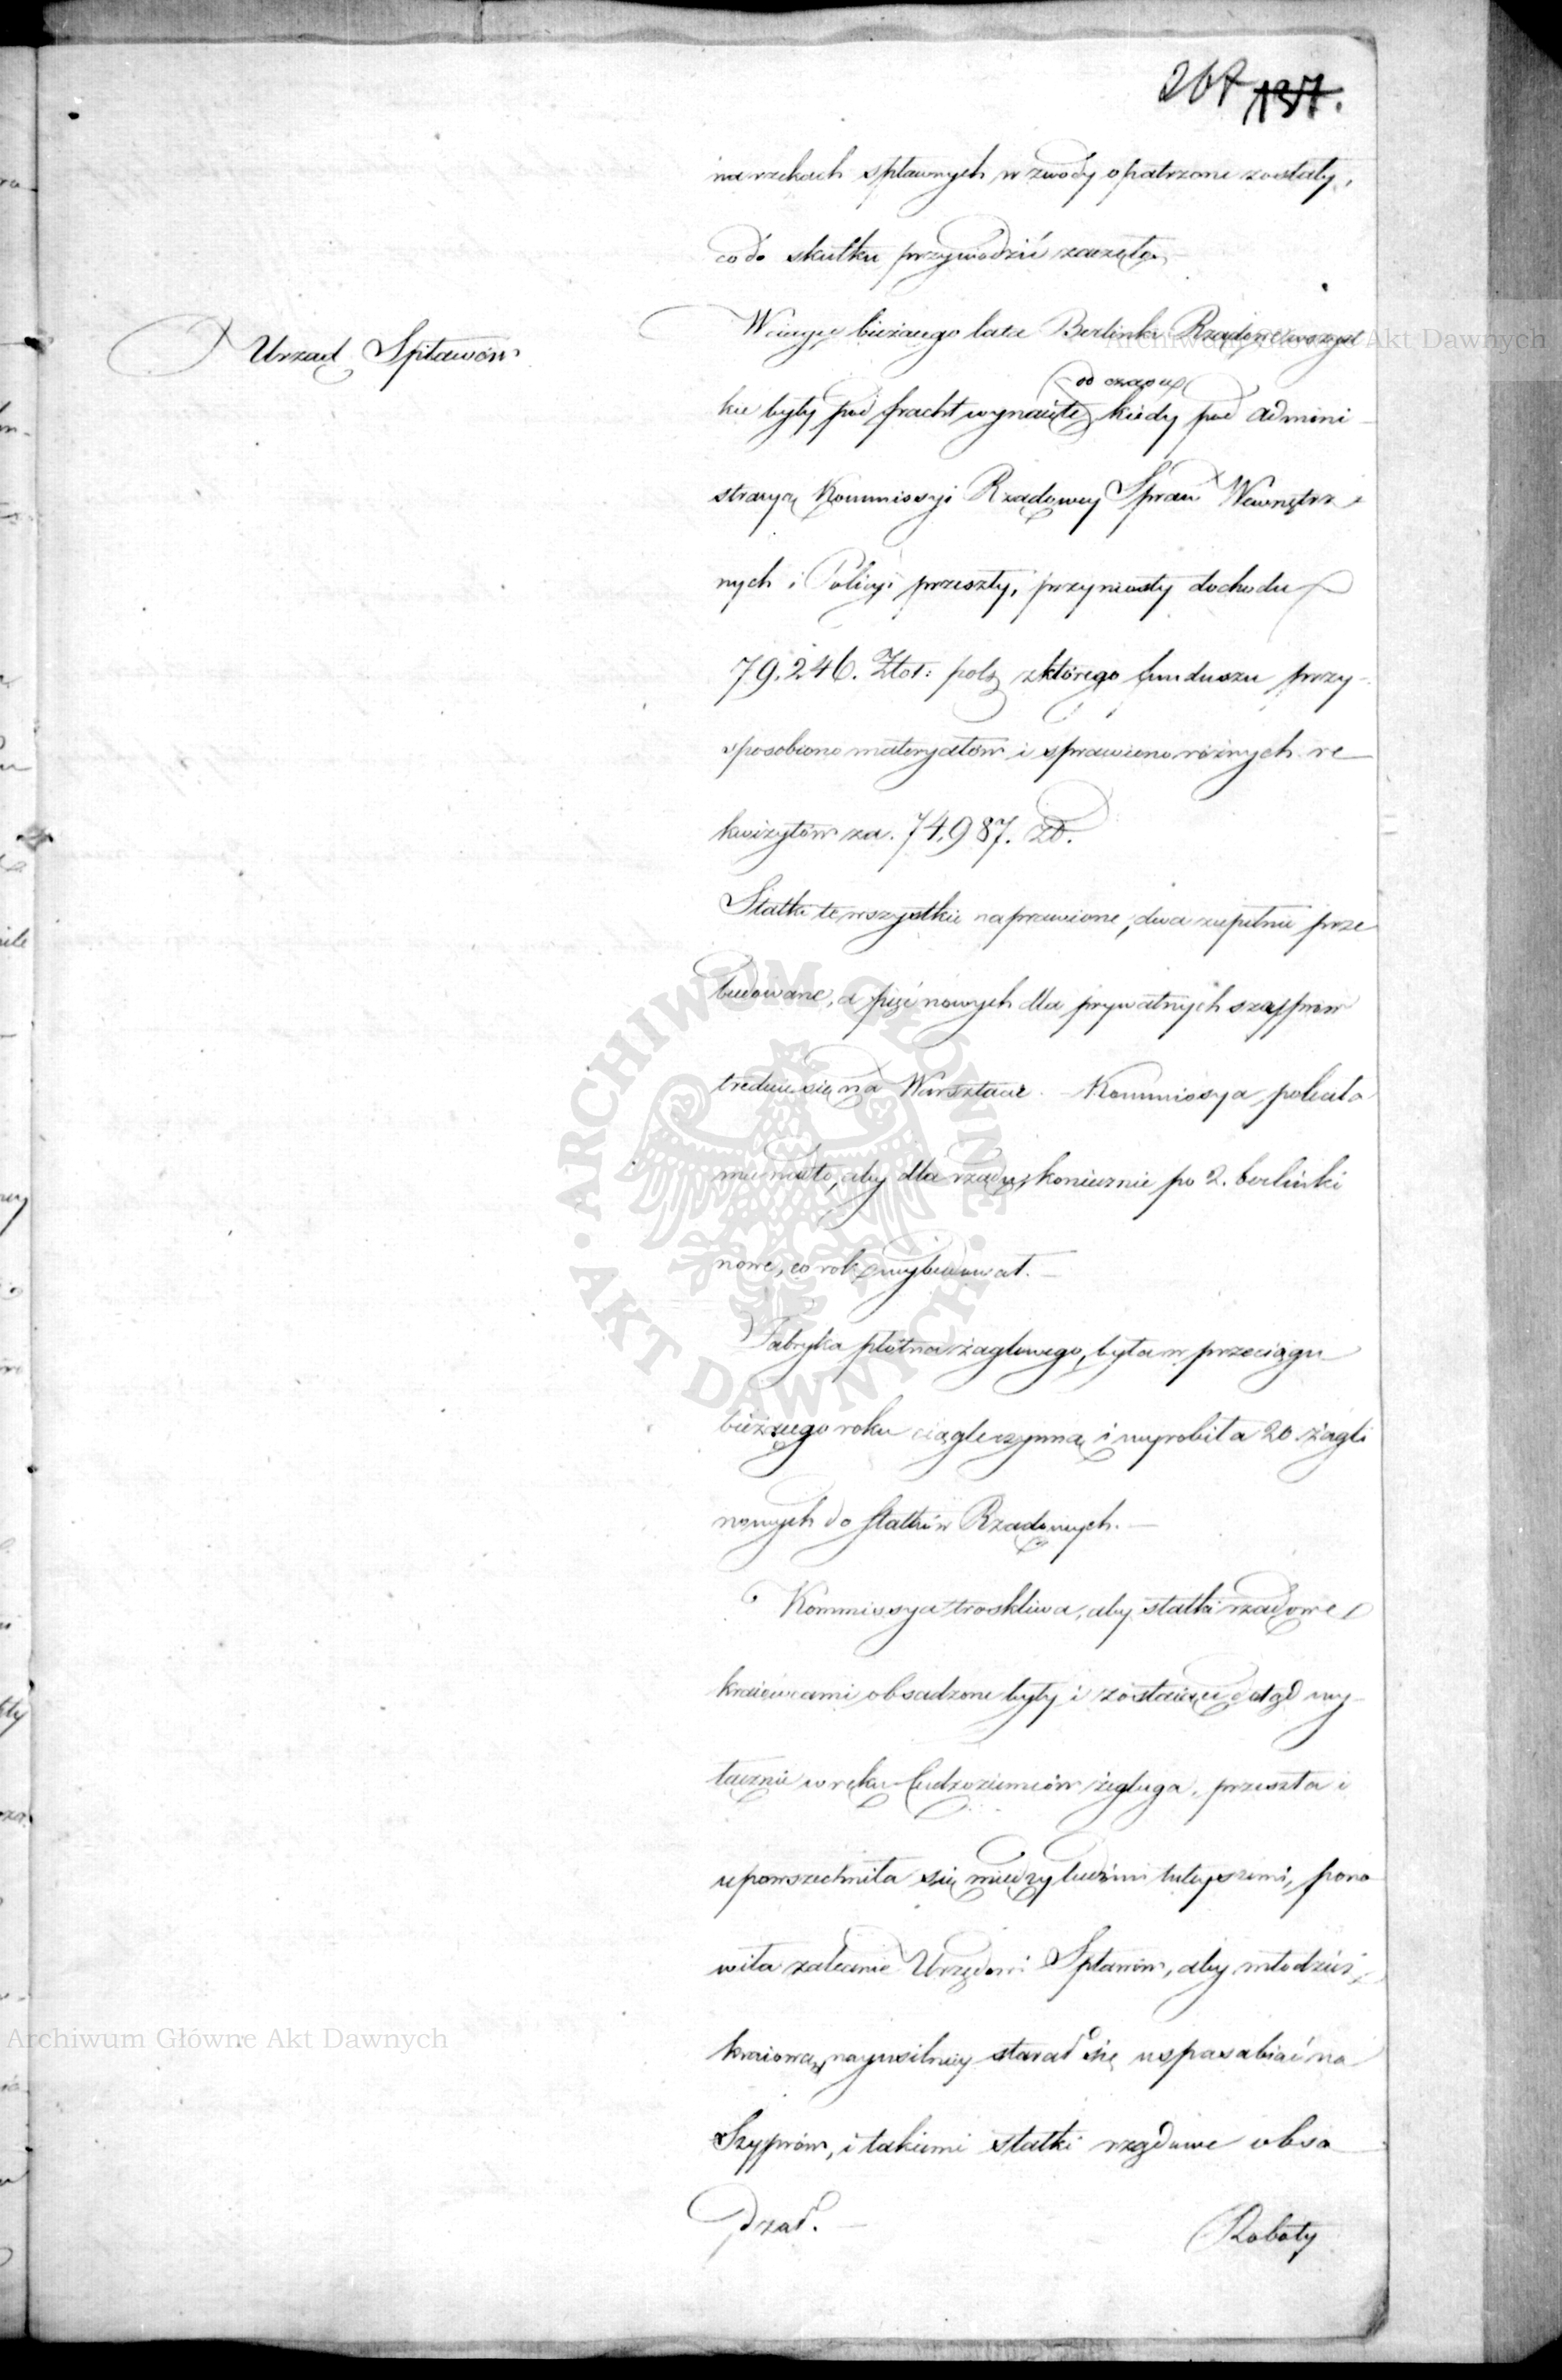 267 137.
na rzekach spławnych w zwody opatrzone zostały,
co do skutku przywodzić zaczęto,
Urząd Spławów
W ciągu bieżącego lata Berlinki Rządowe wszyst
od czasu
kie były pod fracht wynaięte, kiedy pod admini-
stracyą Kommissyi Rządowey Spraw Wewnętrz-
nych i Policyi przeszły, przyniosły dochodu
79.246. Złot: pols z którego funduszu przy-
sposobiono materyałów i sprawiono różnych re-
kwizytów za. 74.987. zł.
Statki te wszystkie naprawione, dwa zupełnie prze
budowane, a pięć nowych dla prywatnych szyprów
buduie się na Warsztacie. - Kommissya polecała
mu nadto, aby dla rządu, koniecznie po 2. berlinki
nowe, co rok wybudował. -
Fabryka płótna żaglowego, była w przeciągu
bieżącego roku ciągle czynną i wyrobiła 20 żagli
nowych do statków Rządowych. -
Kommissya troskliwa, aby statki rządowe
kraiowcami obsadzone były i zostaiąca dotąd wy-
łącznie w ręku Cudzoziemców żegluga, przeszła i
upowszechniła się między ludźmi tuteyszemi, pono
wiła zalecenie Urzędowi Spławów, aby młodzież
kraiową, nayusilniey starał się usposabiać na
Szyprów, i takiemi statki rządowe obsa
dzał. -
Roboty
Archiwum Główne Akt Dawnych
Archiwum Główne Akt Dawnych
ARCHIWUM GŁÓWNE AKT DAWNYCH